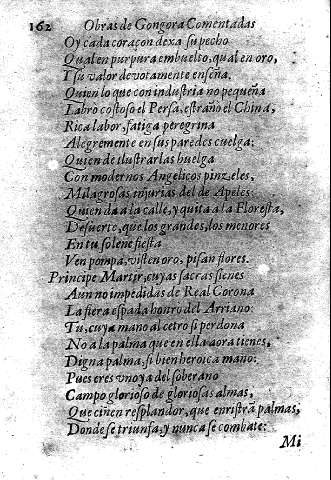 162 Obras de Gongora Comentadas
Oy cada coraçon dexa su pecho
Qual en purpura embuelto, qual en oro,
I su valor devotamente enseña.
Quien lo que con industria no pequeña
Labrò costoso el Persa, estraño el China,
Rica labor, fatiga peregrina
Alegremente en sus paredes cuelga;
Quien de ilustrarlas huelga
Con modernos Angelicos pinzeles,
Milagrosas injurias del de Apeles.
Quien da a la calle, y quita a la Floresta,
De suerte, que los grandes, los menores
En tu solene fiesta
Ven pompa, visten oro, pisan flores.
Principe Martir, cuyas sacras sienes
Aun no impedidas de Real Corona
La fiera espada honrò del Arriano:
Tu, cuya mano al cetro si perdona
No a la palma que en ella aora tienes,
Digna palma, si bien heroica mano:
Pues eres uno ya del soberano
Campo glorioso de gloriosas almas,
Que ciñen resplandor, que enristrā palmas,
Donde se triunfa, y nunca se combate:
Mi